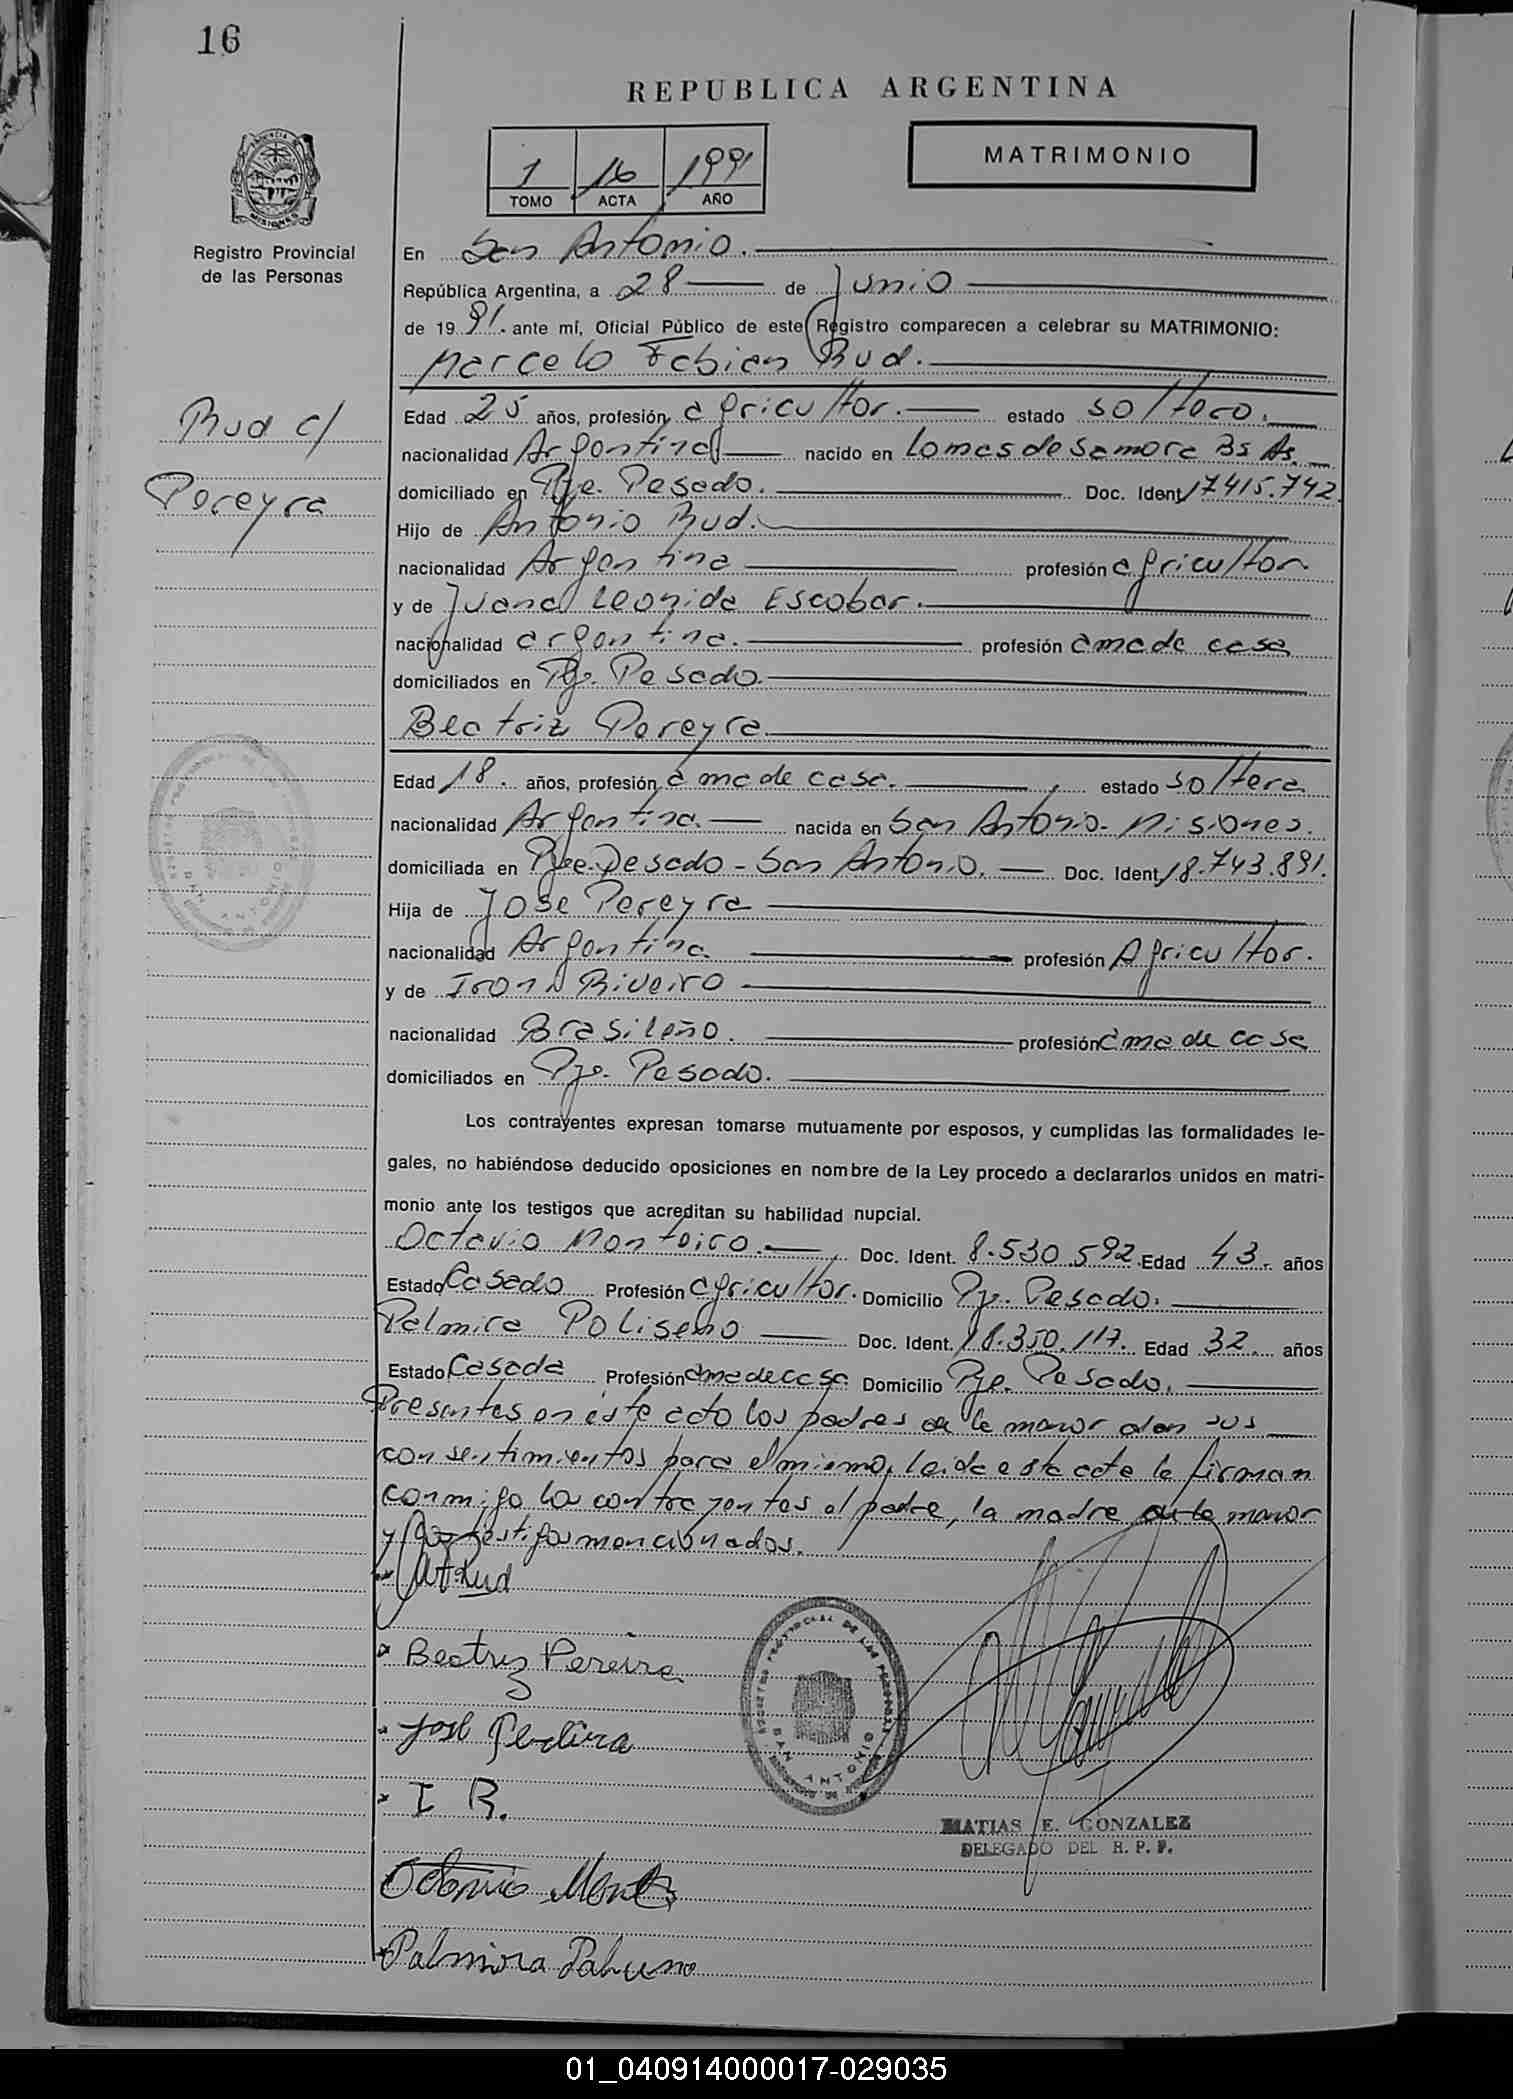 16
REPUBLICA ARGENTINA
1 16 1991
TOMO ACTA AÑO
MATRIMONIO
Registro Provincial
de las Personas
En San Antonio.
República Argentina, a 28 de Junio
de 1991. ante mí, Oficial Público de este Registro comparecen a celebrar su MATRIMONIO:
Marcelo Fabian Rud.
Rud c/
Pereyra
Edad 25 años, profesión agricultor. estado soltero.
nacionalidad Argentina nacido en Lomas de Samora Bs As.
domiciliado en Pje. Pesado. Doc. Ident 17415.742
Hijo de Antonio Rud.
nacionalidad Argentina profesión agricultor
y de Juana Leonida Escobar.
nacionalidad argentina. profesión ama de casa
domiciliados en Pje. Pesado.
Beatriz Pereyra
Edad 18. años, profesión ama de casa. estado soltera
nacionalidad Argentina. nacida en San Antonio. Misiones.
domiciliada en Pje. Pesado - San Antonio. Doc. Ident 18.743.891.
Hija de Jose Pereyra
nacionalidad Argentina profesión Agricultor.
y de Riveiro
nacionalidad Brasileño. profesión ama de casa
domiciliados en Pje. Pesado.
Los contrayentes expresan tomarse mutuamente por esposos, y cumplidas las formalidades le-
gales, no habiéndose deducido oposiciones en nombre de la Ley procedo a declararlos unidos en matri-
monio ante los testigos que acreditan su habilidad nupcial.
Octavio Monteiro. Doc. Ident. 8.530.592 Edad 43. años
Estado Casado Profesión agricultor. Domicilio Pje. Pesado.
Palmira Poliseno Doc. Ident. 18.350.117. Edad 32. años
Estado Casada Profesión ama de casa Domicilio Pje. Pesado.
Presentes en este acto los padres de la menor dan sus
consentimientos para el mismo, leida esta acta la firman
conmigo los contrayentes el padre, la madre de la menor
y los testigos mencionados.
Rud
Beatriz Pereira
José Pereira
I R.
REGISTRO PROVINCIAL DE LAS PERSONAS
SAN ANTONIO
MATIAS E. GONZALEZ
DELEGADO DEL R. P. P.
Octavio
Palmira
01_040914000017-029035